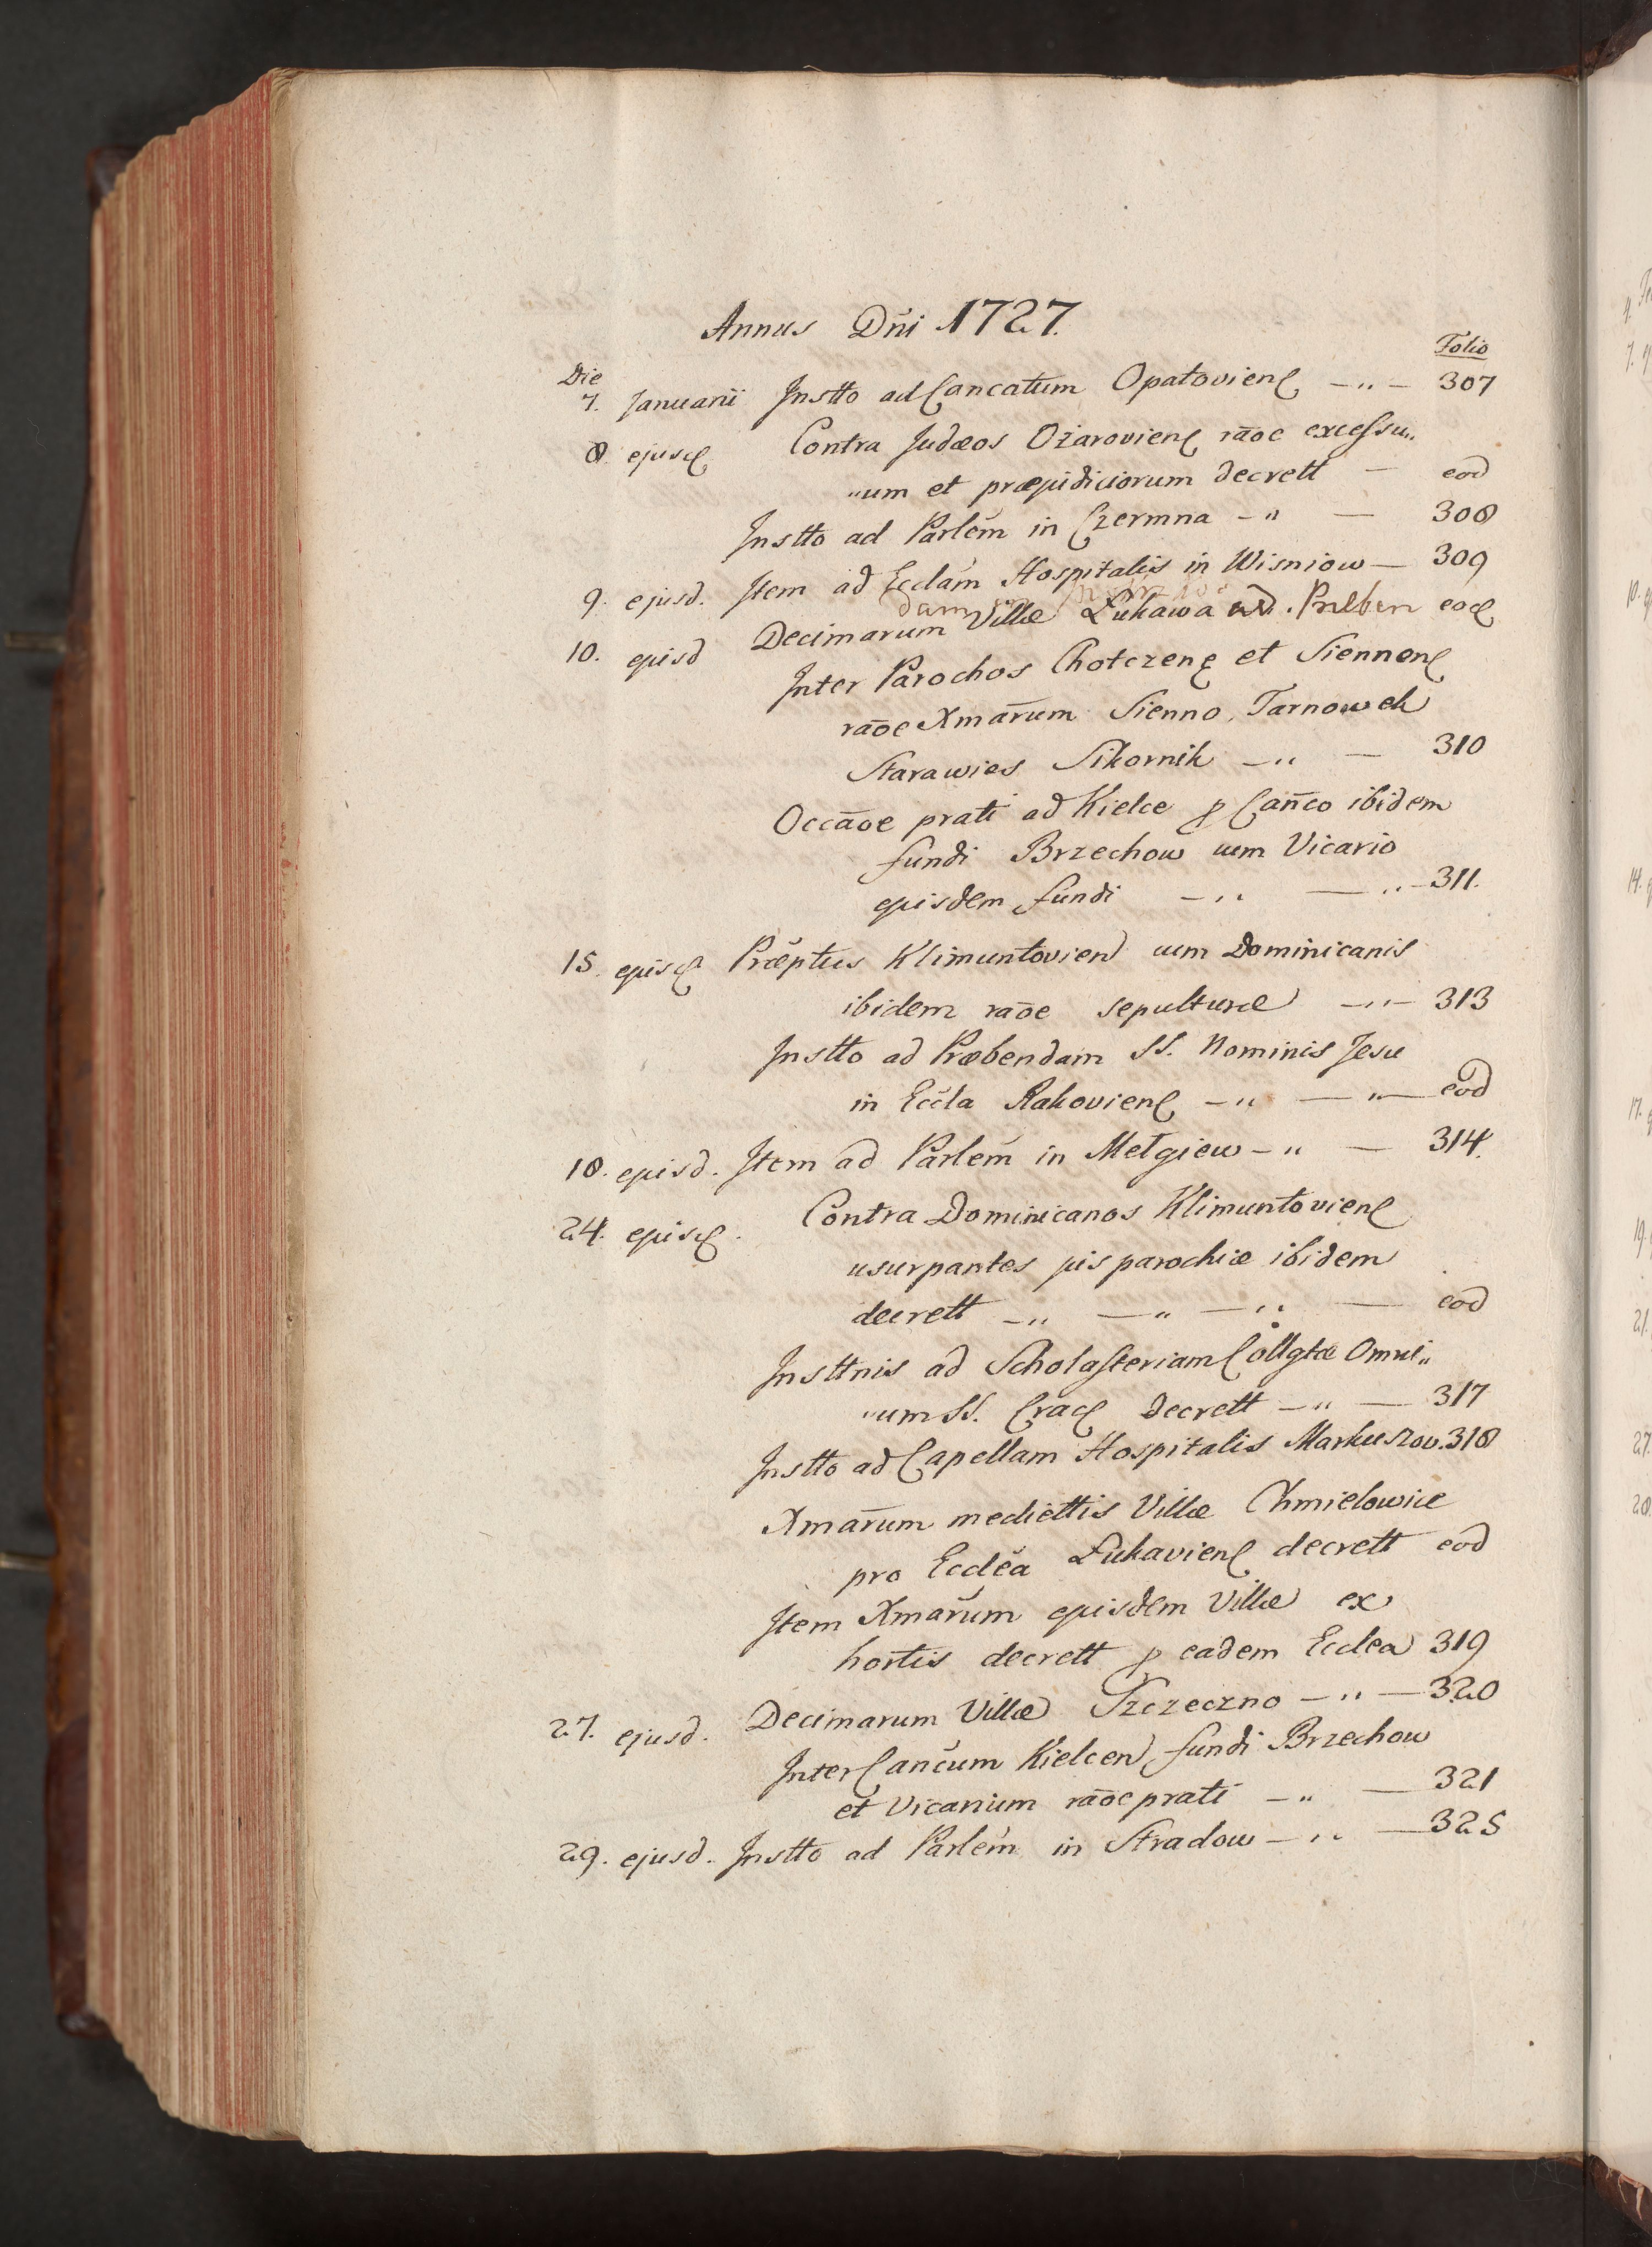 Annus Dñi 1727.
Folio
Die
7. Januarii Instto ad Cancatum Opatoviens — „ — 307
8. ejusd Contra Judæos Ożaroviens rãoe excessu„
„um et præjudiciorum decrett — eod
Instto ad Parlem in Czermna — „ — 308
9. ejusd. Item ad Ecclam Hospitalis in Wisniow — 309
10. ejusd Decimarum Villæ Łukawa ad. Præben eod
dam
Inter Parochos Chotczens et Siennens
rãoe Xmarum Sienno, Tarnowek
Starawies Sikornik — „ — 310
Occãoe prati ad Kielce p Cañco ibidem
fundi Brzechow cum Vicario
ejusdem fundi — „ — „ — 311.
15. ejusd Præptus Klimuntovien cum Dominicanis
ibidem rãoe sepulturæ — „ — 313
Instto ad Præbendam SS. Nominis Jesu
in Eccla Rakoviens — „ — „ — eod
18. ejusd. Item ad Parlem in Metgiew — „ — 314.
24. ejusd. Contra Dominicanos Klimuntoviens
usurpantes jus parochiæ ibidem
decrett — „ — „ — „ — eod
Insttnis ad Scholasteriam Collgtæ Omni„
„um SS. Crac decrett — „ — 317
Instto ad Capellam Hospitalis Markuszov. 318
Xmarum mediettis Villæ Chmielowice
pro Ecclea Łukaviens decrett eod
Item Xmarum ejusdem Villæ ex
hortis decrett p eadem Ecclea 319
27. ejusd. Decimarum Villæ Szczeczno — „ — 320
Inter Cancum Kielcen fundi Brzechow
et Vicarium rãoe prati — „ — 321
29. ejusd. Instto ad Parlem in Stradow — „ — 325